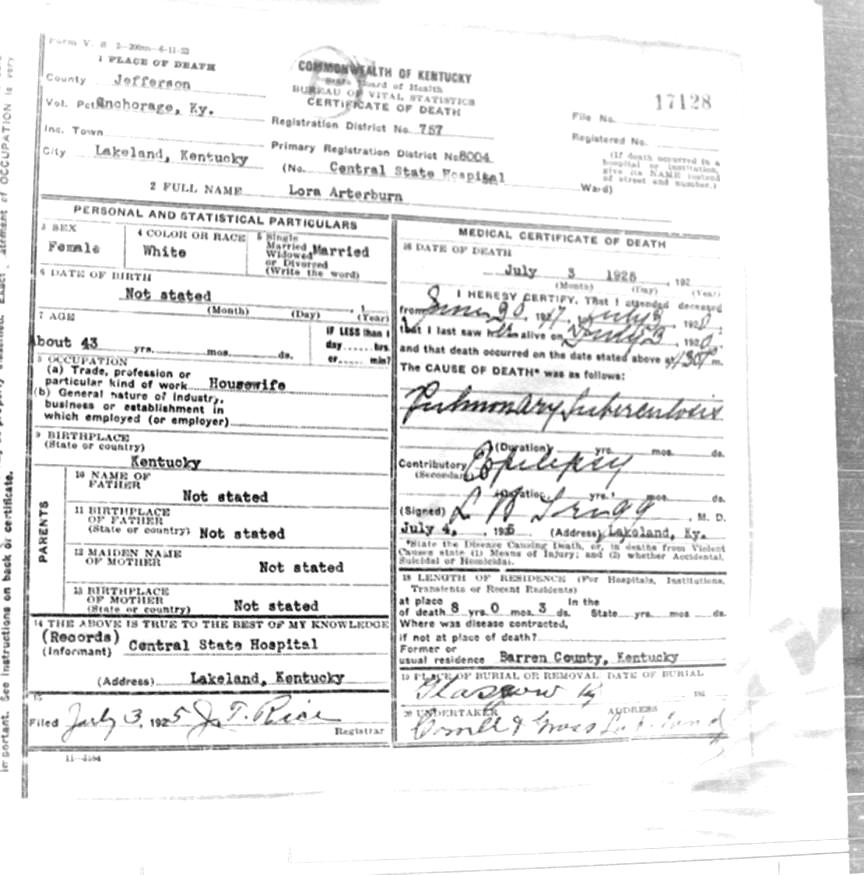 Form V. S 2-200m-6-11-23
1 PLACE OF DEATH
County Jefferson
Vol. Pct Anchorage, Ky.
Inc. Town
City Lakeland, Kentucky
COMMONWEALTH OF KENTUCKY
State Board of Health
BUREAU OF VITAL STATISTICS
CERTIFICATE OF DEATH
Registration District No. 757
Primary Registration District No 8004
(No. Central State Hospital Ward)
File No. 17128
Registered No.
(If death occurred in a
hospital or institution,
give its NAME instead
of street and number.)
2 FULL NAME Lora Arterburn
PERSONAL AND STATISTICAL PARTICULARS
3 SEX
Female
4 COLOR OR RACE
White
5 Single
Married
Widowed
or Divorced
(Write the word)
Married
6 DATE OF BIRTH
Not stated
(Month) (Day) (Year)
7 AGE
About 43 yrs. mos. ds.
IF LESS than 1
day hrs.
or min?
8 OCCUPATION
(a) Trade, profession or
particular kind of work Housewife
(b) General nature of Industry,
business or establishment in
which employed (or employer)
9 BIRTHPLACE
(State or country)
Kentucky
PARENTS
10 NAME OF
FATHER
Not stated
11 BIRTHPLACE
OF FATHER
(State or country) Not stated
12 MAIDEN NAME
OF MOTHER
Not stated
13 BIRTHPLACE
OF MOTHER
(State or country) Not stated
14 THE ABOVE IS TRUE TO THE BEST OF MY KNOWLEDGE
(Records)
(Informant) Central State Hospital
(Address) Lakeland, Kentucky
15
Filed July 3, 1925 J. T. Rice
Registrar
11-3184
MEDICAL CERTIFICATE OF DEATH
16 DATE OF DEATH
July 3 1925, 192
(Month) (Day) (Year)
I HEREBY CERTIFY, That I attended deceased
from June 30, 1917, July 3, 192
that I last saw her alive on July 3, 192
and that death occurred on the date stated above at m.
The CAUSE OF DEATH* was as follows:
Pulmonary Tuberculosis
(Duration) yrs. mos. ds.
Contributory Epilepsy
(Secondary)
(Duration) yrs. mos. ds.
(Signed) L B Trigg, M. D.
July 4, 1925 (Address) Lakeland, Ky.
*State the Disease Causing Death, or, in deaths from Violent
Causes state (1) Means of Injury; and (2) whether Accidental,
Suicidal or Homicidal.
18 LENGTH OF RESIDENCE (For Hospitals, Institutions,
Transients or Recent Residents)
at place 8 yrs. 0 mos. 3 ds. In the
of death State yrs. mos ds.
Where was disease contracted,
if not at place of death?
Former or
usual residence Barren County, Kentucky
19 PLACE OF BURIAL OR REMOVAL DATE OF BURIAL
Glasgow Ky 192
20 UNDERTAKER ADDRESS
& Gross Lakeland
important. See instructions on back of certificate.